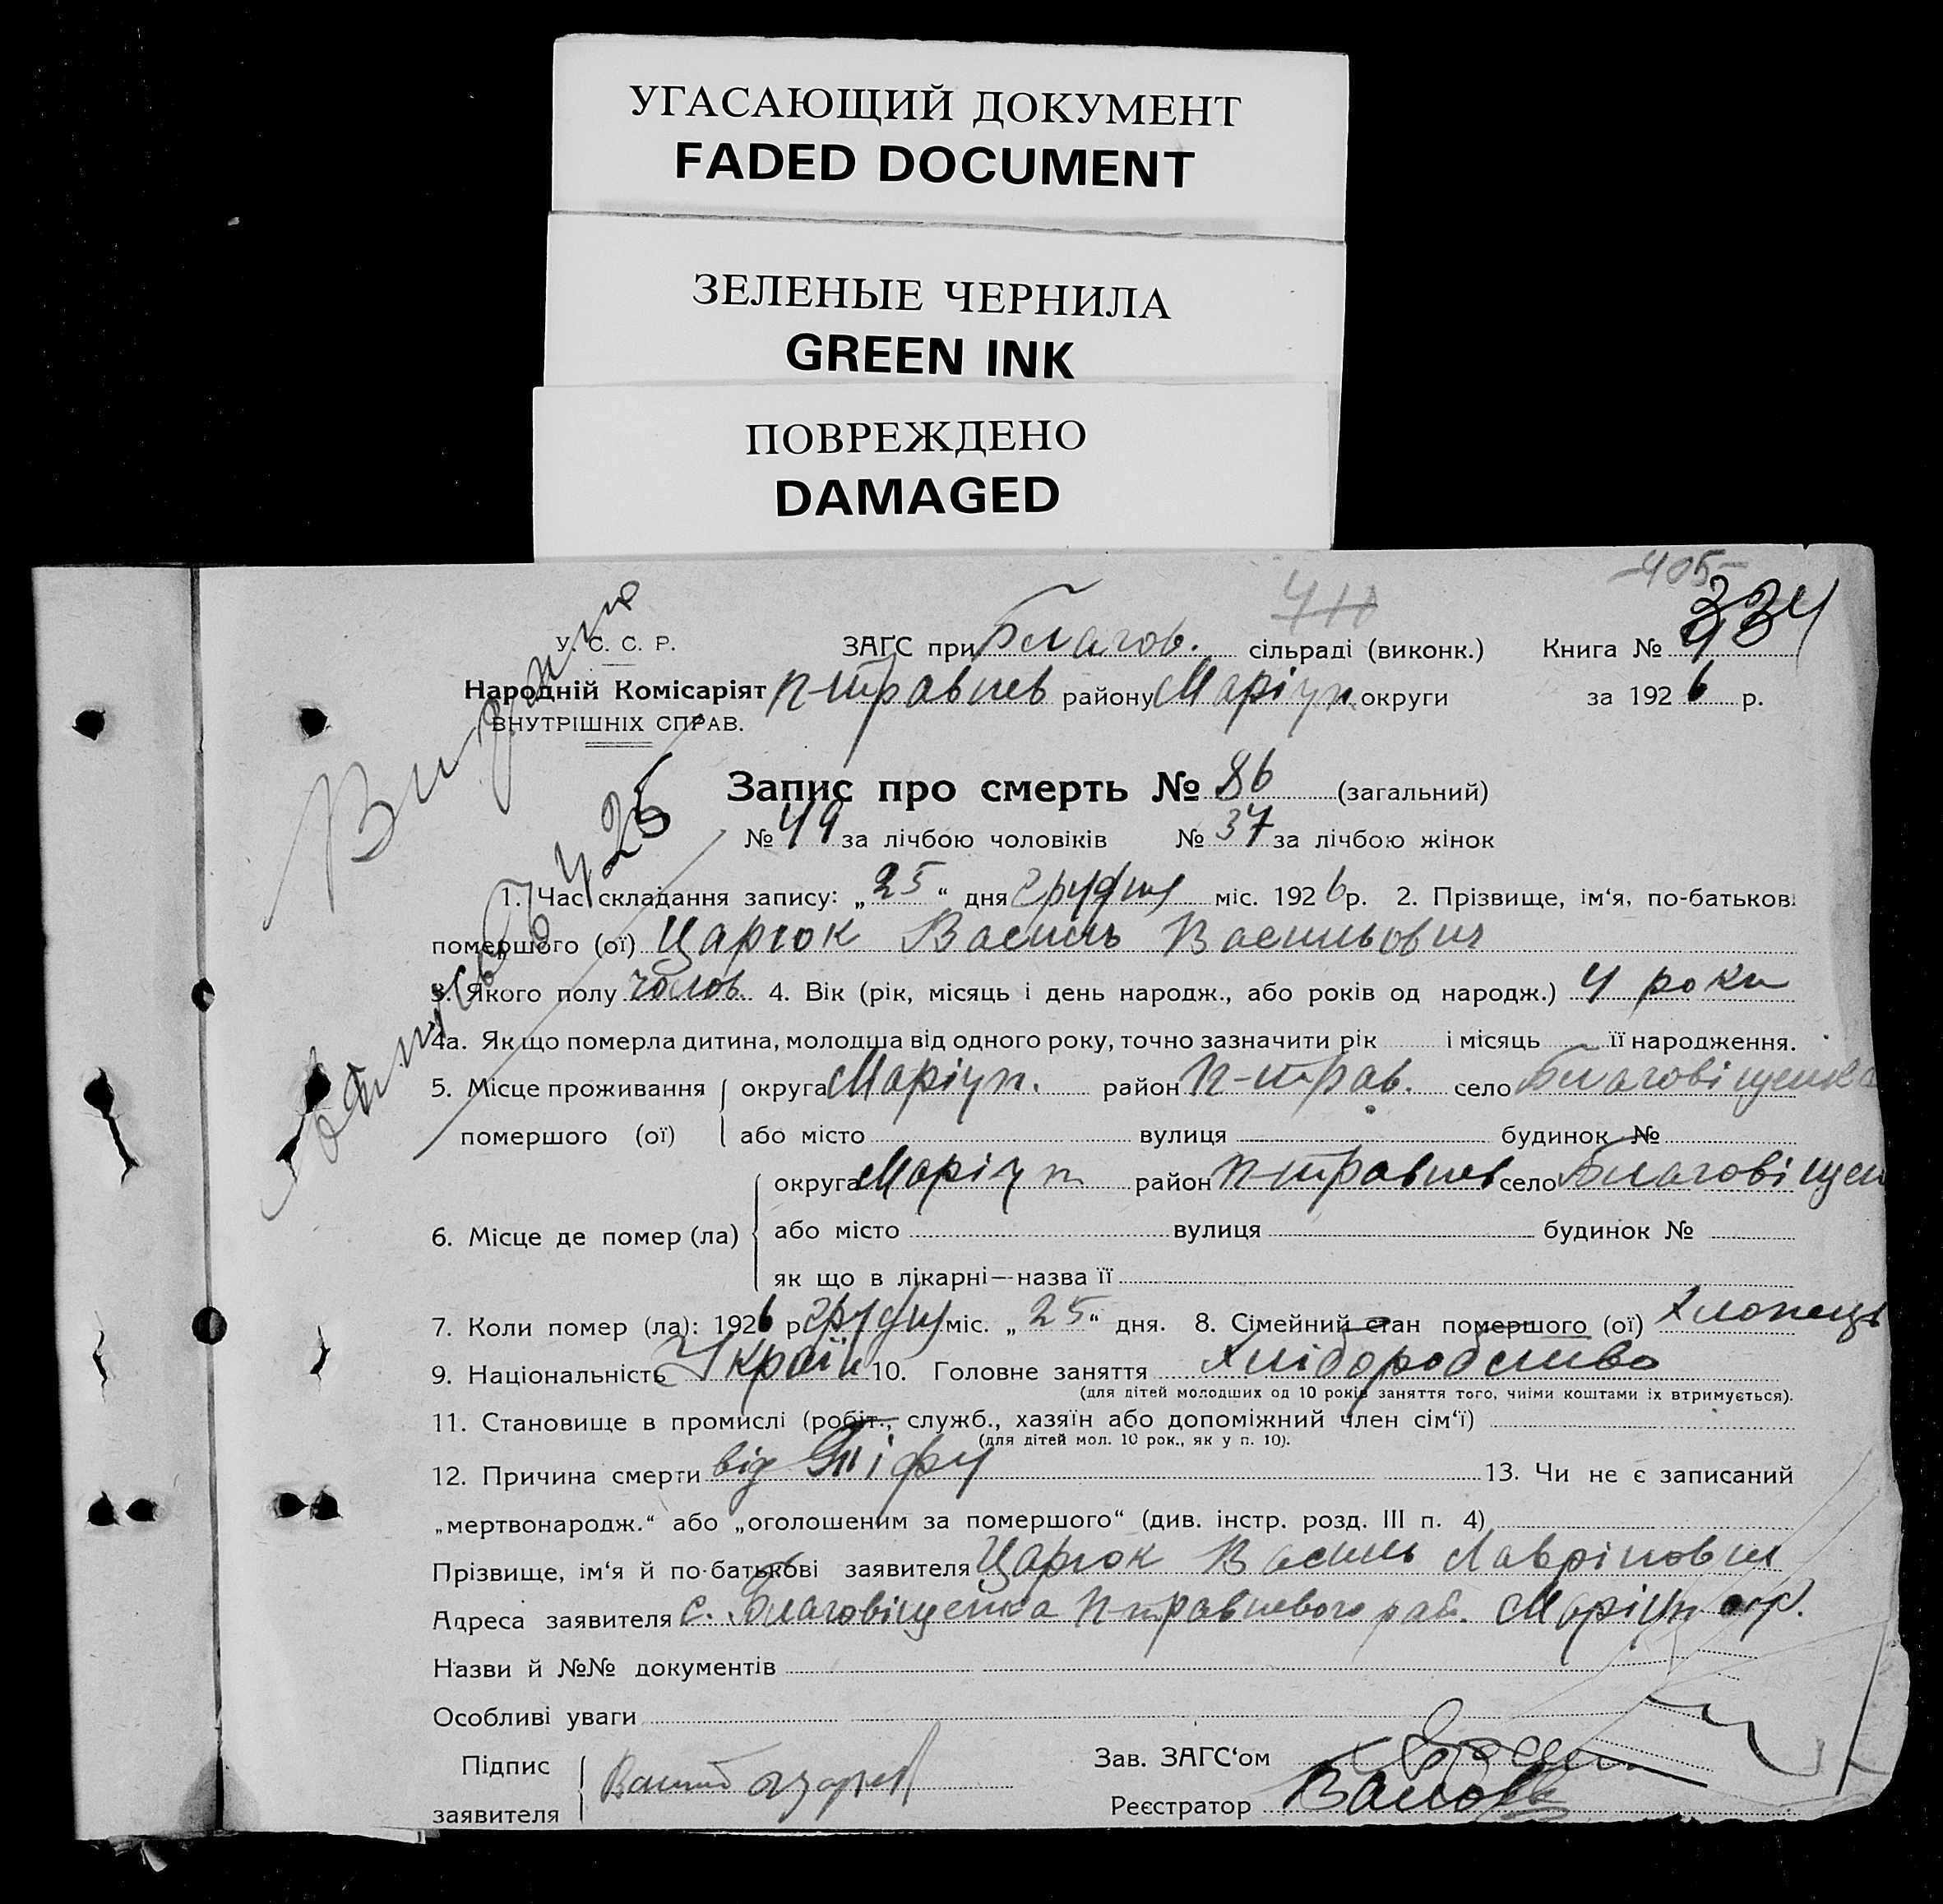 УГАСАЮЩИЙ ДОКУМЕНТ
FADED DOCUMENT
ЗЕЛЕНЫЕ ЧЕРНИЛА
GREEN INK
ПОВРЕЖДЕНО
DAMAGED
405
410
334
У. С. С. Р.
ЗАГС при Благов. сільраді (виконк.) Книга №
Народній Комісаріят п-травнев району Маріуп. округи за 1926 р.
ВНУТРІШНІХ СПРАВ.
425
Запис про смерть № 86 (загальний)
№ 49 за лічбою чоловіків № 37 за лічбою жінок
1. Час складання запису: „25“ дня грудня міс. 1926 р. 2. Прізвище, ім‘я, по-батькові
помершого (ої) Царюк Василь Васильович
3. Якого полу чолов. 4. Вік (рік, місяць і день народж., або років од народж.) 4 роки
4а. Як що померла дитина, молодша від одного року, точно зазначити рік і місяць її народження.
5. Місце проживання округа Маріуп. район п-трав. село Благовіщенка
помершого (ої) або місто вулиця будинок №
округа Маріуп район п-травнев село Благовіщен
6. Місце де помер (ла) або місто вулиця будинок №
як що в лікарні—назва її
7. Коли помер (ла): 1926 р грудня міс. „25“ дня. 8. Сімейний стан помершого (ої) хлопець
9. Національність Україн 10. Головне заняття хліборобство
(для дітей молодших од 10 років заняття того, чиїми коштами їх втримується).
11. Становище в промислі (робіт., служб., хазяїн або допоміжний член сім‘ї)
(для дітей мол. 10 рок., як у п. 10).
12. Причина смерти від 13. Чи не є записаний
„мертвонародж.“ або „оголошеним за помершого“ (див. інстр. розд. III п. 4)
Прізвище, ім‘я й по-батькові заявителя Царюк Василь Лаврінович
Адреса заявителя с. Благовіщенка п-травневого рай. Маріуп окр.
Назви й №№ документів
Особливі уваги
Підпис Зав. ЗАГС‘ом
заявителя Реєстратор